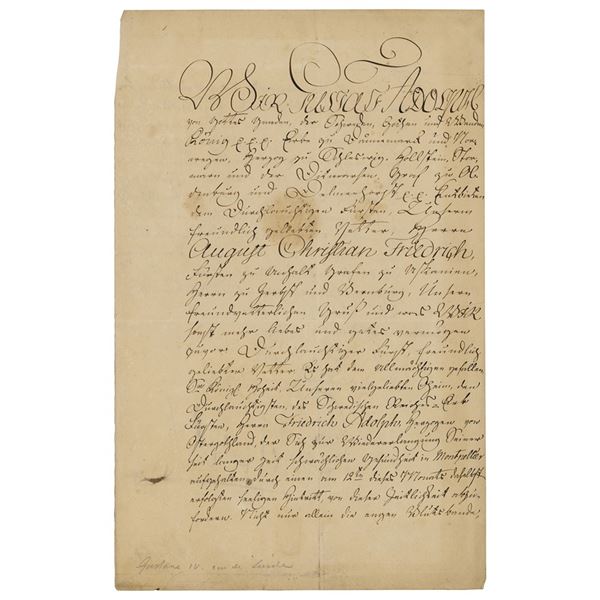 WIR GUSTAF ADOLPH
von Gottes Gnaden, der Schweden, Gothen und Wenden
König p.p.p. Erbe zu Dännemark und Nor-
wegen, Herzog zu Schleswig, Hollstein, Stor-
marn und der Ditmarsen, Graf zu Ol-
denburg und Delmenhorst p.p. Entbieten
dem Durchlauchtigen Fürsten, Unserm
freundlich geliebten Vetter, Herrn
August Christian Friedrich,
Fürsten zu Anhalt, Grafen zu Askanien,
Herrn zu Zerbst und Bernburg, Unsern
freundvetterlichen Gruß und was WIR
sonst mehr liebes und gutes vermögen
zuvor. Durchlauchtiger Fürst, freundlich
geliebter Vetter. Es hat dem Allmächtigen gefallen
Se Königl. Hoheit, Unseren vielgeliebten Oheim, den
Durchlauchtigsten, des Schwedischen Reichs Erb
Fürsten, Herrn Friedrich Adolph, Herzogen von
Ostergothland, der Sich zur Wiedererlangung Seiner
seit langer Zeit schwächlichen Gesundheit in Montpellier
aufgehalten, durch einen am 12ten dieses Monats daselbst
erfolgten seeligen Hintritt, von dieser Zeitlichkeit abzu-
fordern. Nicht nur allein die engen Blutsbande,
Gustave IV. von